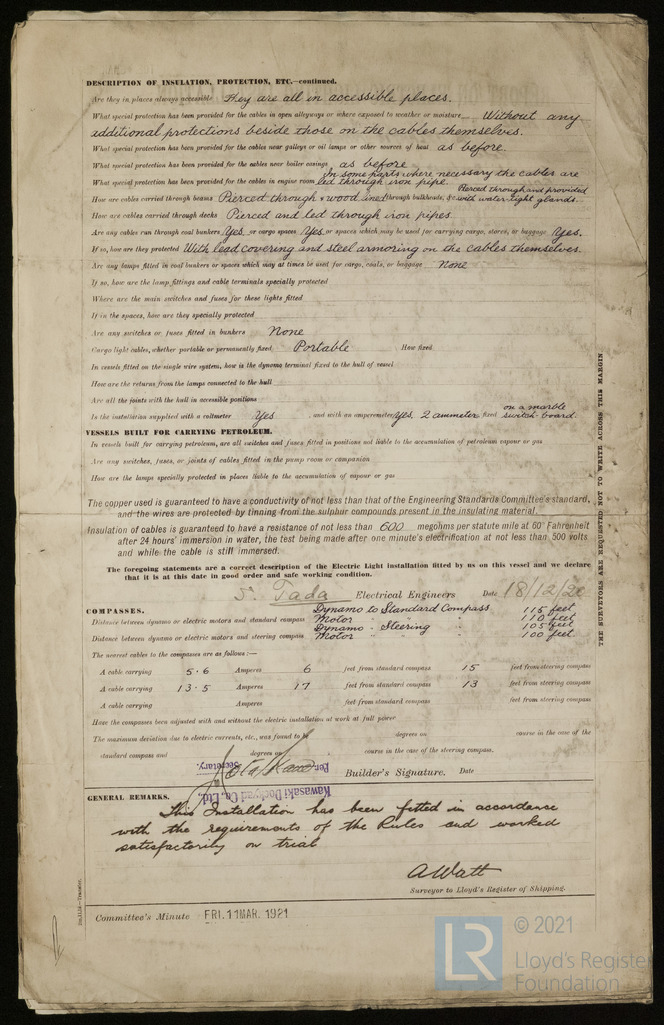 DESCRIPTION OF INSULATION, PROTECTION, ETC.—continued.
Are they in places always accessible They are all in accessible places.
What special protection has been provided for the cables in open alleyways or where exposed to weather or moisture Without any
additional protections beside those on the cables themselves.
What special protection has been provided for the cables near galleys or oil lamps or other sources of heat as before.
What special protection has been provided for the cables near boiler casings as before
What special protection has been provided for the cables in engine room In some parts where necessary the cables are led through iron pipe.
How are cables carried through beams Pierced through & wood lined through bulkheads, &c. Pierced through and provided with water-tight glands.
How are cables carried through decks Pierced and led through iron pipes.
Are any cables run through coal bunkers Yes or cargo spaces Yes or spaces which may be used for carrying cargo, stores, or baggage Yes.
If so, how are they protected With lead covering and steel armoring on the cables themselves.
Are any lamps fitted in coal bunkers or spaces which may at times be used for cargo, coals, or baggage None
If so, how are the lamp fittings and cable terminals specially protected
Where are the main switches and fuses for these lights fitted
If in the spaces, how are they specially protected
Are any switches or fuses fitted in bunkers None
Cargo light cables, whether portable or permanently fixed Portable How fixed
In vessels fitted on the single wire system, how is the dynamo terminal fixed to the hull of vessel
How are the returns from the lamps connected to the hull
Are all the joints with the hull in accessible positions
Is the installation supplied with a voltmeter Yes , and with an amperemeter Yes, 2 ammeter fixed on a marble switch-board.
VESSELS BUILT FOR CARRYING PETROLEUM.
In vessels built for carrying petroleum, are all switches and fuses fitted in positions not liable to the accumulation of petroleum vapour or gas
Are any switches, fuses, or joints of cables fitted in the pump room or companion
How are the lamps specially protected in places liable to the accumulation of vapour or gas
The copper used is guaranteed to have a conductivity of not less than that of the Engineering Standards Committee's standard,
and the wires are protected by tinning from the sulphur compounds present in the insulating material.
Insulation of cables is guaranteed to have a resistance of not less than 600 megohms per statute mile at 60° Fahrenheit
after 24 hours' immersion in water, the test being made after one minute's electrification at not less than 500 volts
and while the cable is still immersed.
The foregoing statements are a correct description of the Electric Light installation fitted by us on this vessel and we declare
that it is at this date in good order and safe working condition.
Tada Electrical Engineers Date 18/12/20
COMPASSES.
Distance between dynamo or electric motors and standard compass Dynamo to Standard Compass 115 feet
Motor " " " 110 feet
Distance between dynamo or electric motors and steering compass Dynamo - Steering " 105 feet
Motor " " " 100 feet
The nearest cables to the compasses are as follows:—
A cable carrying 5.6 Amperes 6 feet from standard compass 15 feet from steering compass
A cable carrying 13.5 Amperes 17 feet from standard compass 13 feet from steering compass
A cable carrying Amperes feet from standard compass feet from steering compass
Have the compasses been adjusted with and without the electric installation at work at full power
The maximum deviation due to electric currents, etc., was found to be degrees on course in the case of the
standard compass and degrees on course in the case of the steering compass.
Kawasaki Dockyard Co., Ltd.
Per
Secretary.
Builder's Signature. Date
GENERAL REMARKS.
This Installation has been fitted in accordance
with the requirements of the Rules and worked
satisfactorily on trial
A Watt
Surveyor to Lloyd's Register of Shipping.
Committee's Minute FRI. 11 MAR. 1921
THE SURVEYORS ARE REQUESTED NOT TO WRITE ACROSS THIS MARGIN
LR
© 2021
Lloyd's Register
Foundation